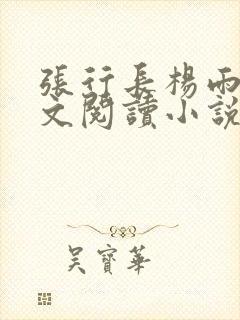 張行長楊雨
文閱讀小說
吳寶華